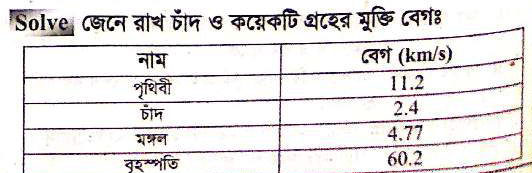 Solve জেনে রাখ চাঁদ ও কয়েকটি গ্রহের মুক্তি বেগঃ
নাম বেগ (km/s)
পৃথিবী 11.2
চাঁদ 2.4
মঙ্গল 4.77
বৃহস্পতি 60.2